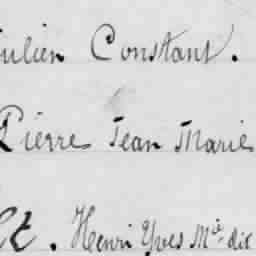 ulien Constant.
Pierre Jean Marie
et. Henri Yves Mie dit